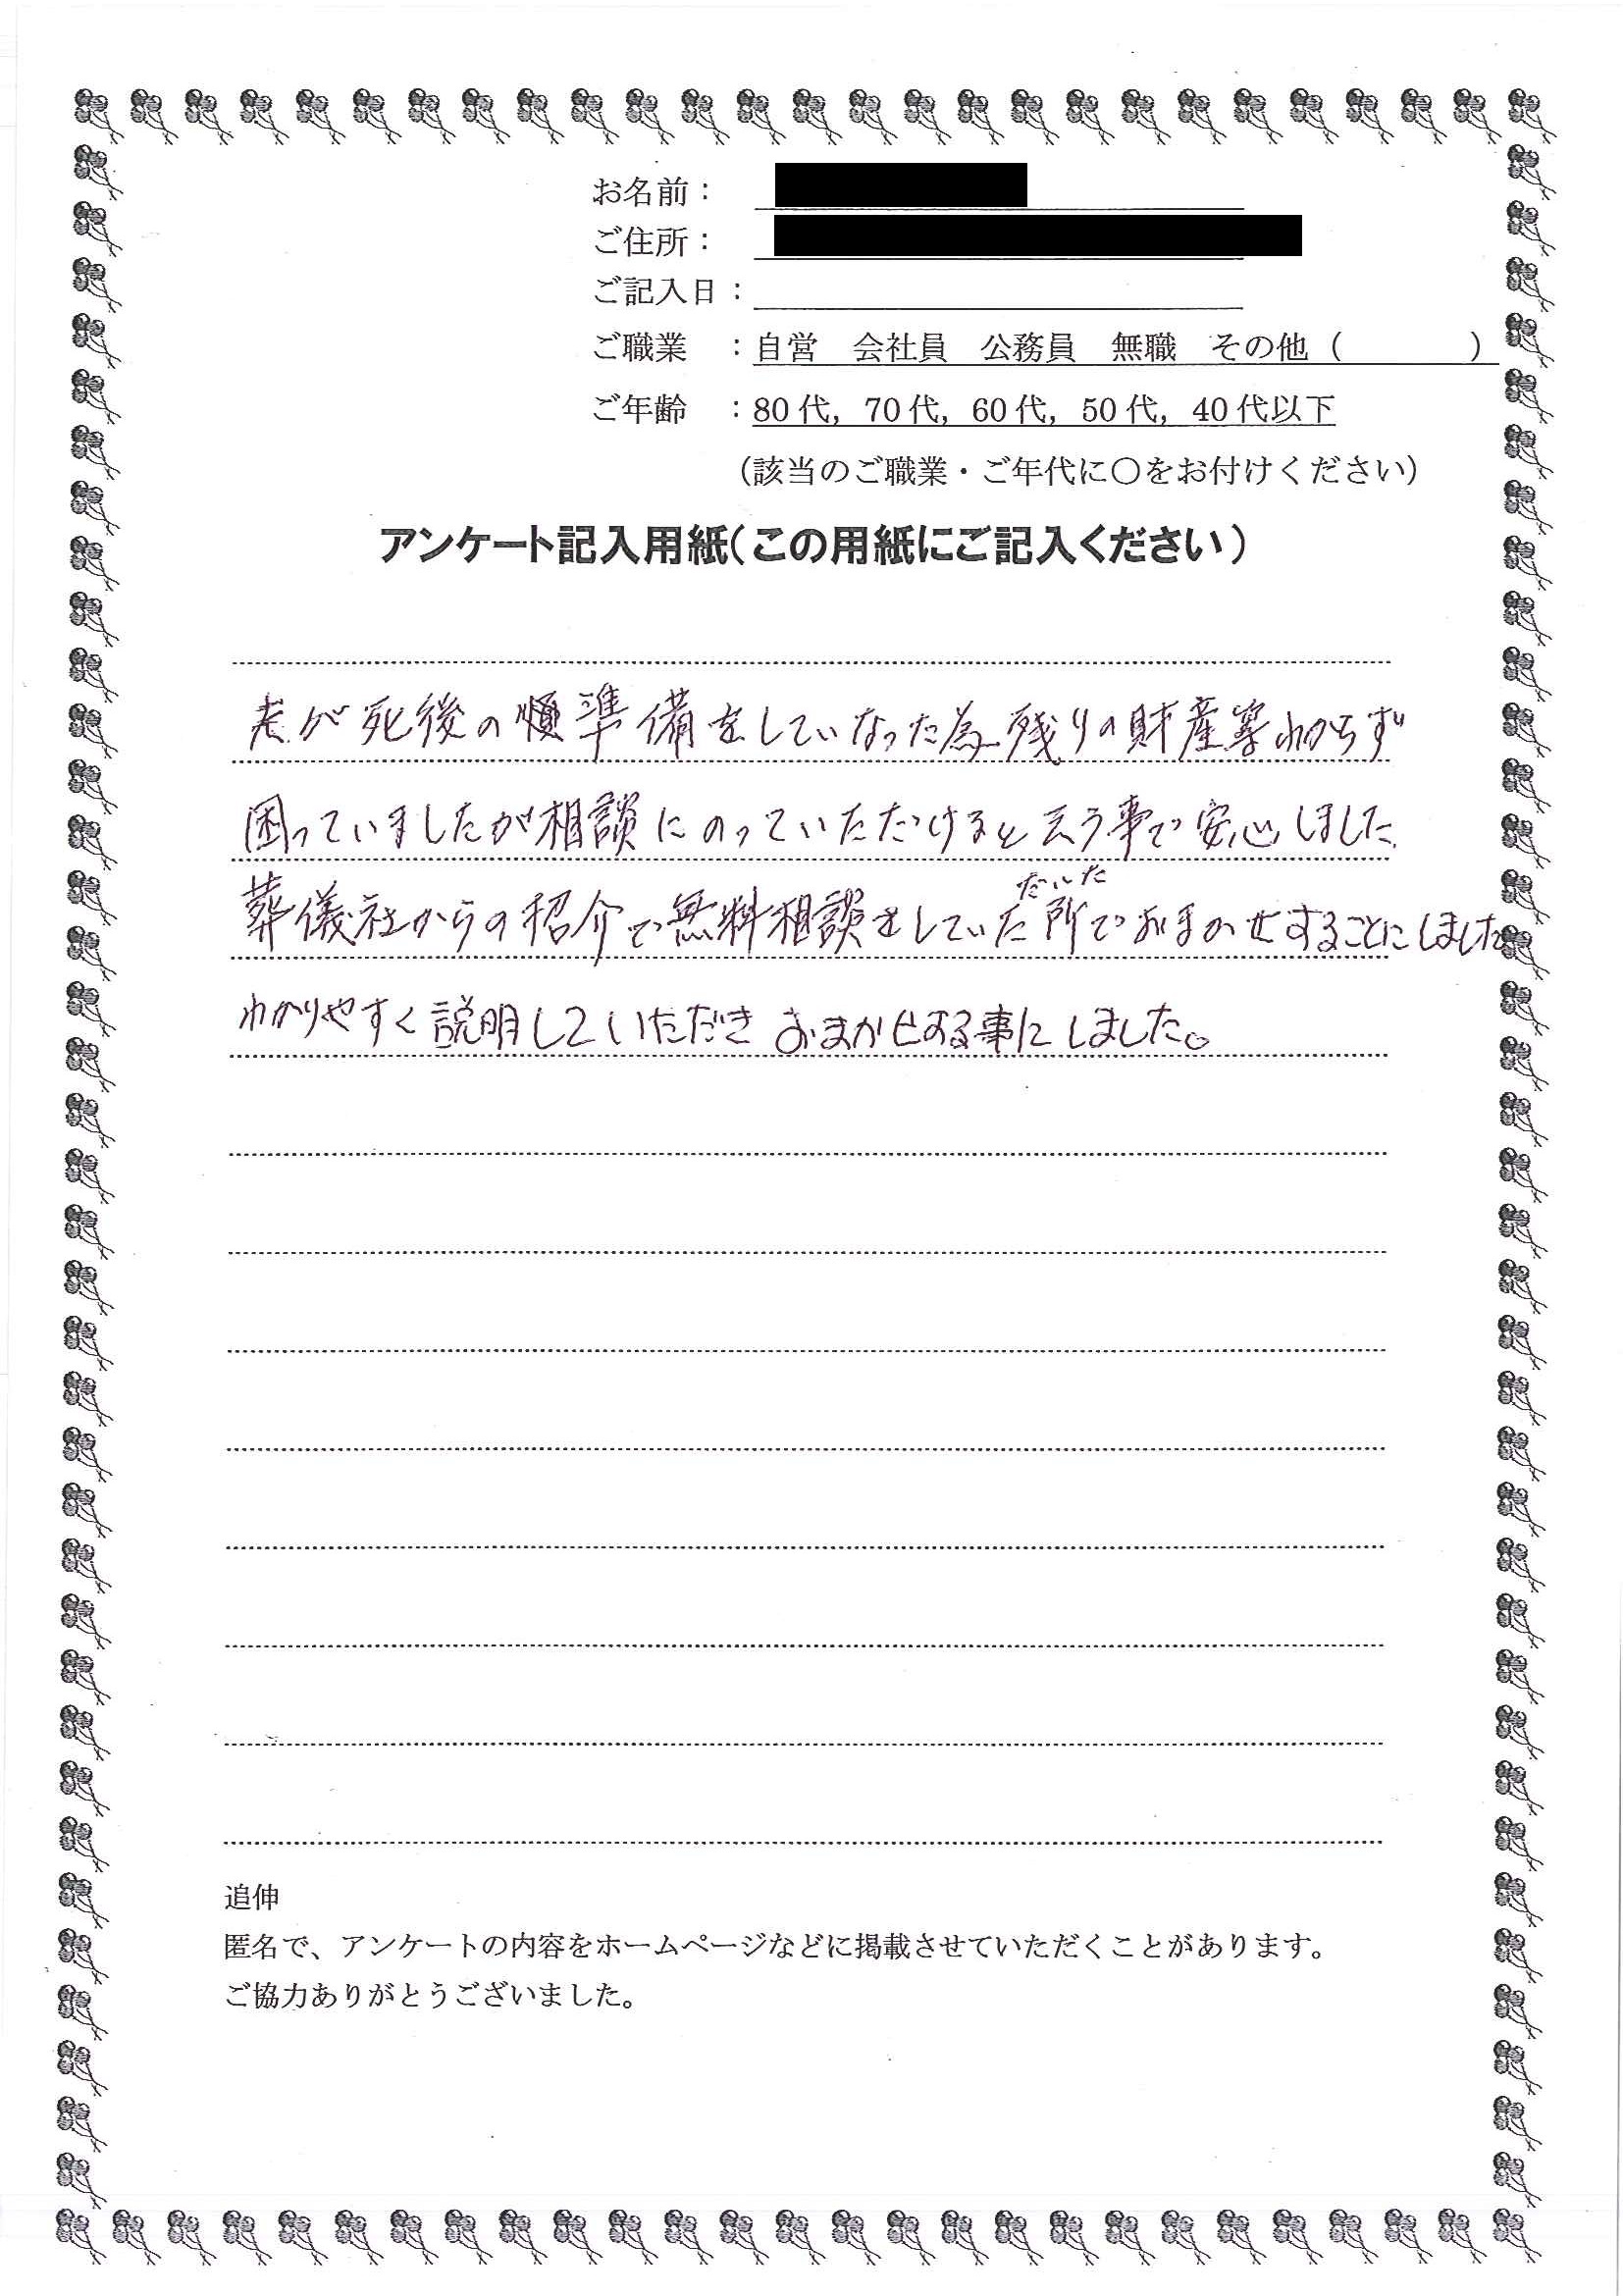 お名前：
ご住所：
ご記入日：
ご職業　：自営　会社員　公務員　無職　その他（　　　　）
ご年齢　：80代，70代，60代，50代，40代以下
（該当のご職業・ご年代に〇をお付けください）
アンケート記入用紙（この用紙にご記入ください）
が死後の準備をしていなった為残りの財産等わからず
困っていましたが相談にのっていただけると云う事で安心しました
葬儀社からの紹介で無料相談をしていただいた所でおまかせすることにしました
わかりやすく説明していただきおまかせする事にしました。
追伸
匿名で、アンケートの内容をホームページなどに掲載させていただくことがあります。
ご協力ありがとうございました。